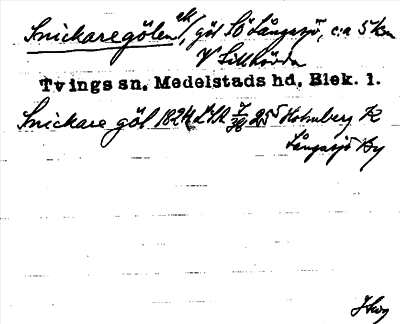 Snickaregölen, göl SÖ Långasjö, c:a 5 km
V Lillhövda
Tvings sn, Medelstads hd, Blek. l.
Snickare göl 1824 LSA 7/38 255 Holmberg K
Långasjö By